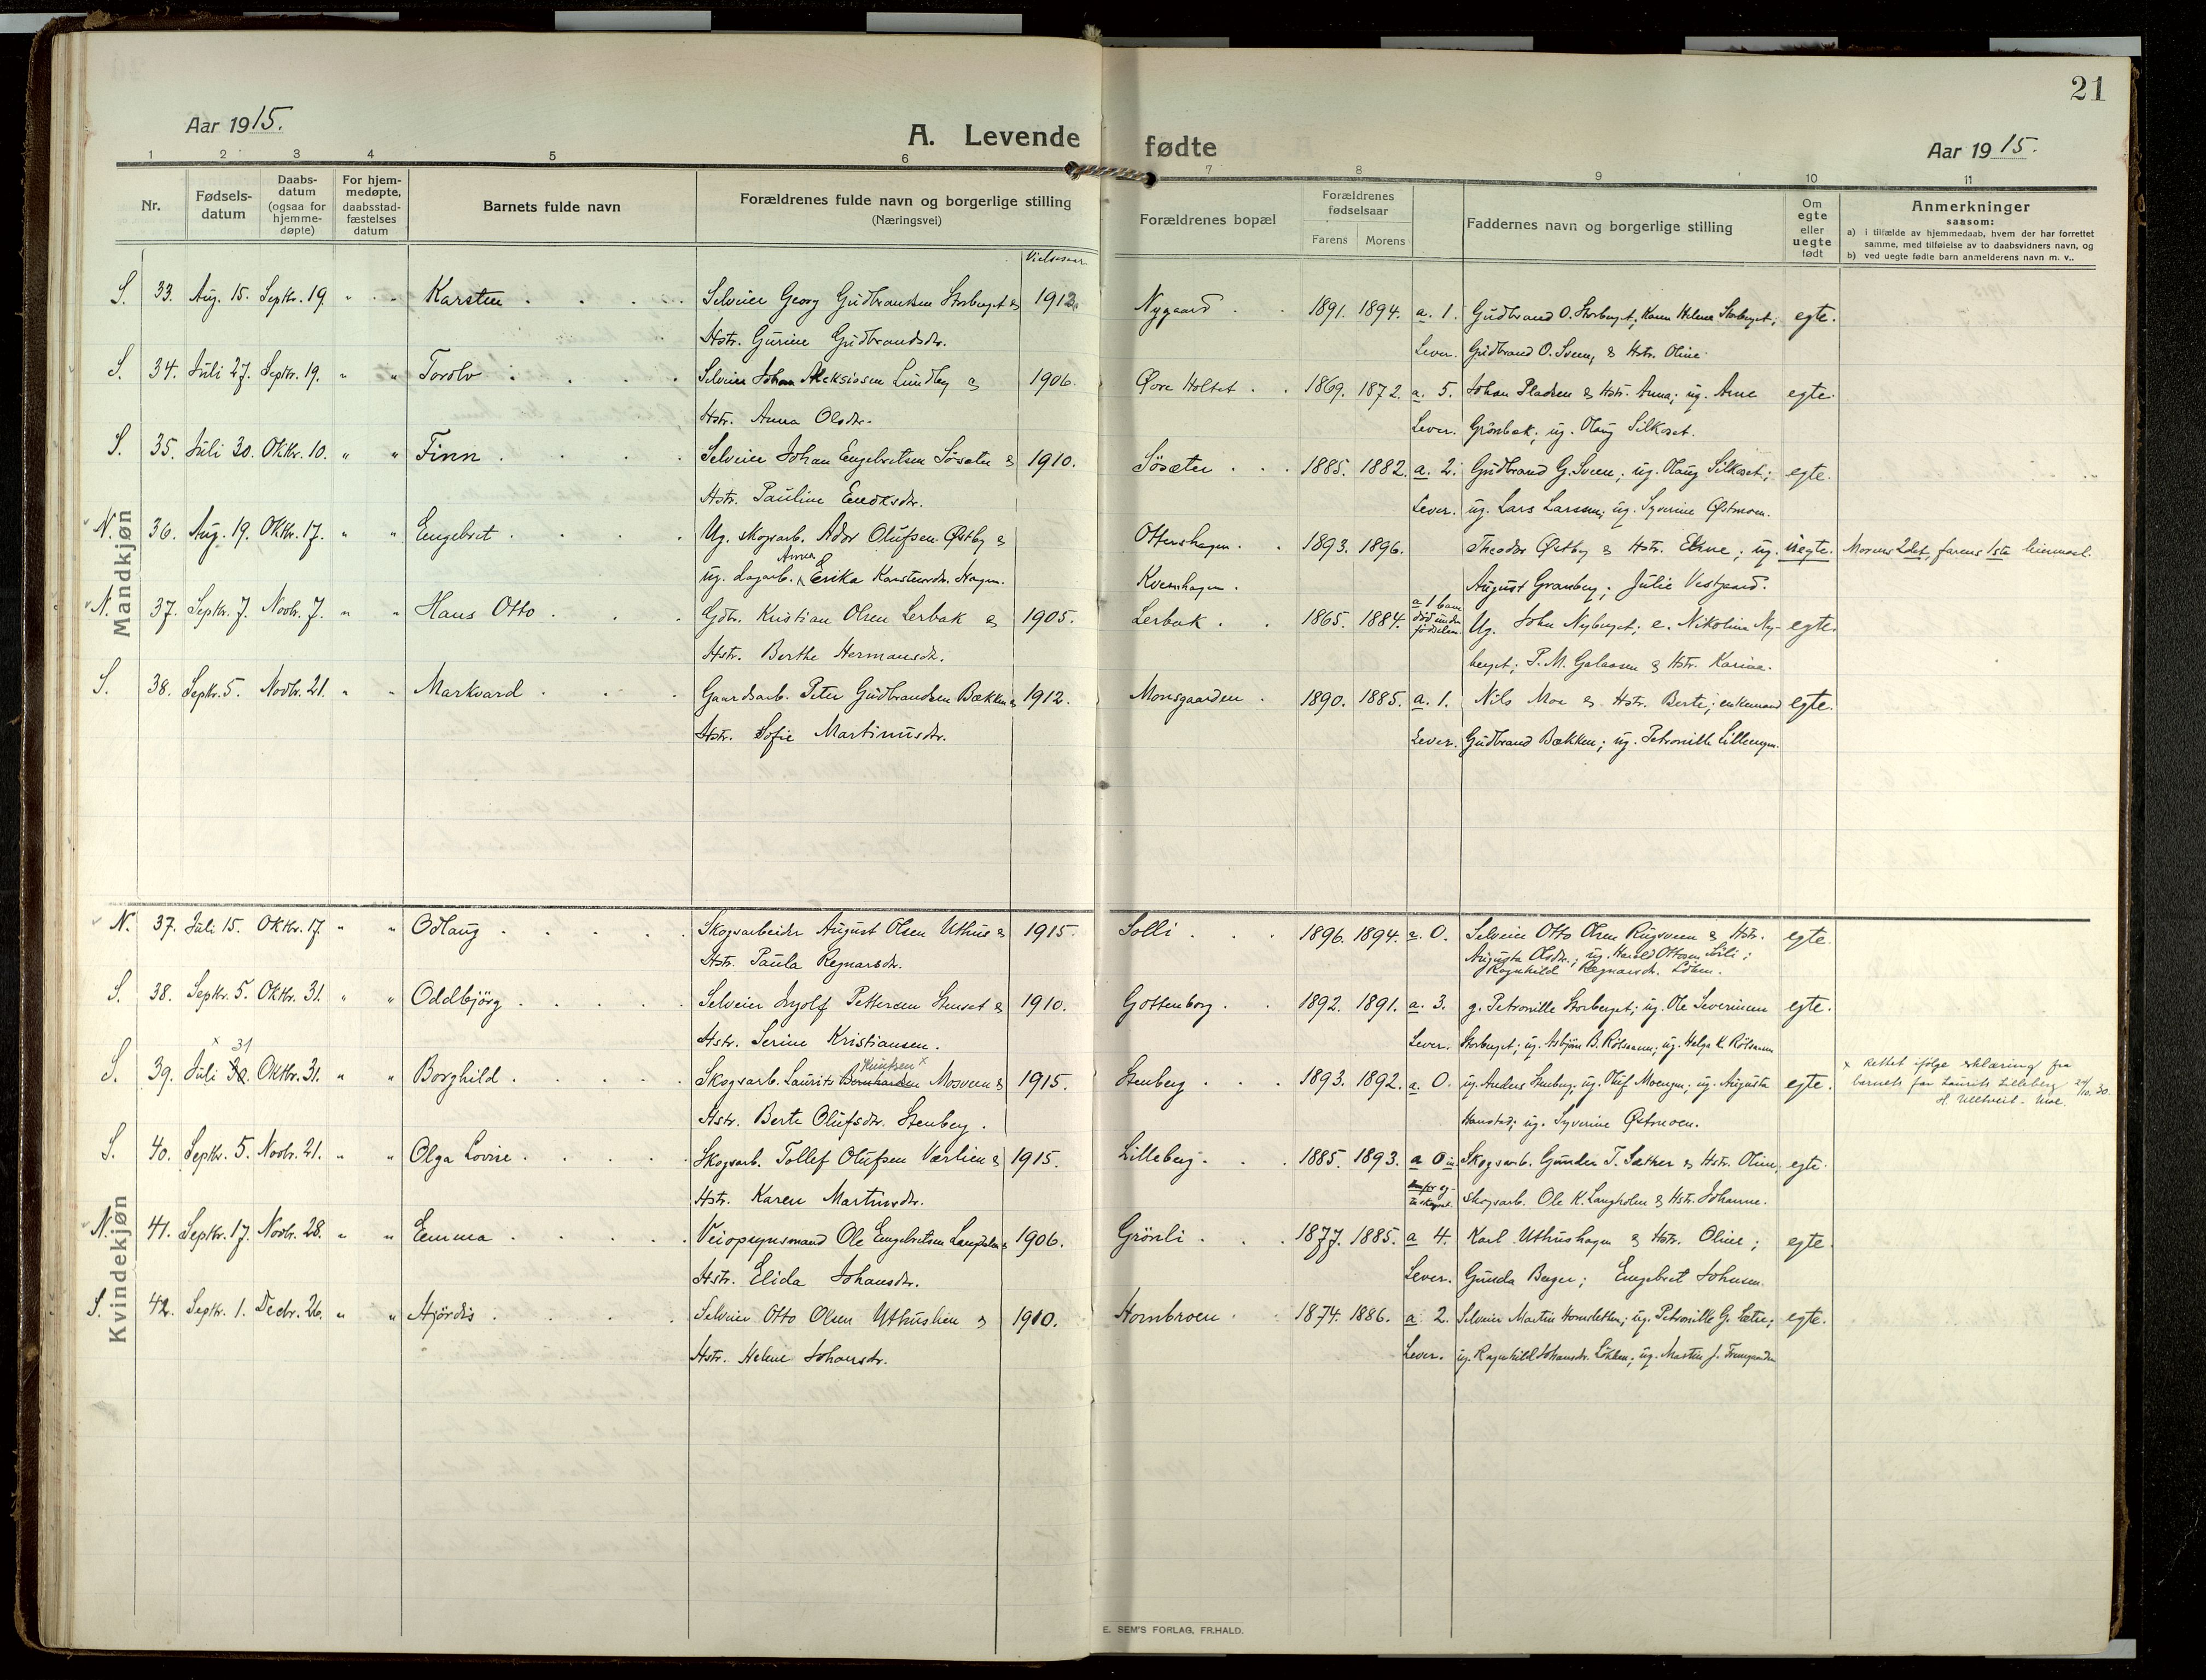 21
Aar 1915.
A. Levende fødte
Aar 1915.
1 2 3 4 5 6 7 8 9 10 11
Nr.
Fødsels-
datum
Daabs-
datum
(ogsaa for
hjemme-
døpte)
For hjem-
medøpte,
daabsstad-
fæstelses
datum
Barnets fulde navn
Forældrenes fulde navn og borgerlige stilling
(Næringsvei)
Vielsesaar
Forældrenes bopæl
Forældrenes
fødselsaar
Farens Morens
Faddernes navn og borgerlige stilling
Om
egte
eller
uegte
født
Anmerkninger
saasom:
a) i tilfælde av hjemmedaab, hvem der har forrettet
samme, med tilføielse av to daabsvidners navn, og
b) ved uegte fødte barn anmelderens navn m. v..
Mandkjøn
S. 33. Aug. 15. Septbr. 19. " " Karsten Selveier Georg Gudbrandsen Storberget & 1912. Nygaard 1891. 1894. a. 1. Gudbrand O. Storberget; Karen Helene Storberget; egte.
Hstr. Gurine Gudbrandsdr. Lever. Gudbrand O. Sveen, & Hstr. Oline
S. 34. Juli 27. Septbr. 19. " " Torolv Selveier Johan Aleksissen Lundby & 1906. Øvre Holtet 1869. 1872. a. 5. Johan Pladsen & Hstr. Anna; ug. Arne egte.
Hstr. Anna Olsdr. Lever. Grönbæk; ug. Olaug Silkoset.
S. 35. Juli 30. Oktbr. 10. " " Finn Selveier Johan Engebretsen Søsæter & 1910. Søsæter 1885. 1882. a. 2. Gudbrand G. Sveen; ug. Olaug Silkoset; egte.
Hstr. Pauline Enoksdr. Lever. ug. Lars Larssen; ug. Syverine Østmoen.
N. 36. Aug. 19. Oktbr. 17. " " Engebret Ug. skogsarb. Ador Olufsen Østby & Ottershagen 1893. 1896. Theodor Østby & Hstr. ; ug. uegte. Morens 2det, farens 1ste leiermaal.
Anna
ug. dagarb. Erika Karstensdr. Hagen. Kvernhagen. August Granberg; Julie Vestgaard.
N. 37. Septbr. 7. Novbr. 7. " " Hans Otto Gdbr. Kristian Olsen Lerbak & 1905. Lerbak 1865. 1884. a 1 barn død under fødselen. Ug. John Nyberget; e. Nikoline Ny- egte.
Hstr. Berthe Hermansdr. berget; P. M. Galaasen & Hstr. Karine.
S. 38. Septbr. 5. Novbr. 21. " " Markvard Gaardsarb. Peter Gudbrandsen Bækken & 1912. Monsgaarden 1890. 1885. a. 1. Nils Moe & Hstr. Berte; enkemand egte.
Hstr. Sofie Martinusdr. Lever. Gudbrand Bækken; ug. Petronille Lillengen.
Kvindekjøn
N. 37. Juli 15. Oktbr. 17. " " Odlaug Skogsarbeider August Olsen Uthus & 1915. Solli 1896. 1894. a. 0. Selveier Otto Olsen Rugsveen & Hstr. egte.
Hstr. Paula Regnarsdr. Augusta Olsdr.; ug. Harald Ottosen Sörli;
Ragnhild Regnarsdr. Löken.
S. 38. Septbr. 5. Oktbr. 31. " " Oddbjörg Selveier Ingolf Pettersen Stenset & 1910. Gottenborg 1892. 1891. a. 3. g. Petronille Storberget; ug. Ole Severinsen egte.
Hstr. Serine Kristiansen. Lever. Storberget; ug. Asbjörn B. Rötsaaen; ug. Helga K. Rötsaaen
x 31
S. 39. Juli 30. Oktbr. 31. " " Borghild Skogsarb. Laurits Bernhardsen Mosveen & 1915. Stenberg 1893. 1892. a. 0. ug. Anders Stenberg; ug. Oluf Moengen; ug. Augusta egte. x Rettet ifølge erklæring fra
Knutsen x
barnets far Laurits Lilleberg 24/10.30.
Hstr. Berte Olufsdr. Stenberg. Hanstad; ug. Syverine Østmoen.
S. 40. Septbr. 5. Novbr. 21. " " Olga Lovise Skogsarb. Tollef Olufsen Værlien & 1915. Lilleberg 1885. 1893. a 0 Skogsarb. Gunder T. Sæther & Hstr. Oline, egte.
Hstr. Karen Martinsdr. skogsarb. Ole K. Langholen & Hstr. Johanne.
N. 41. Septbr. 17. Novbr. 28. " " Emma Veiopsynsmand Ole Engebretsen Langholen & 1906. Grönli 1877. 1885. a 4. Karl Uthushagen & Hstr. Oline; egte.
Hstr. Elida Johansdr. Lever. Gunda Berger; Engebret Johnsen.
S. 42. Septbr. 1. Decbr. 26. " " Hjördis Selveier Otto Olsen Uthuslien & 1910. Hornbroen 1874. 1886. a. 2. Selveier Martin Hornsletten; ug. Petronille G. Sæter; egte.
Hstr. Helene Johansdr. Lever. ug. Ragnhild Johansdr. Løkken; ug. Martin J. Framgaarden
E. SEM'S FORLAG, FR.HALD.